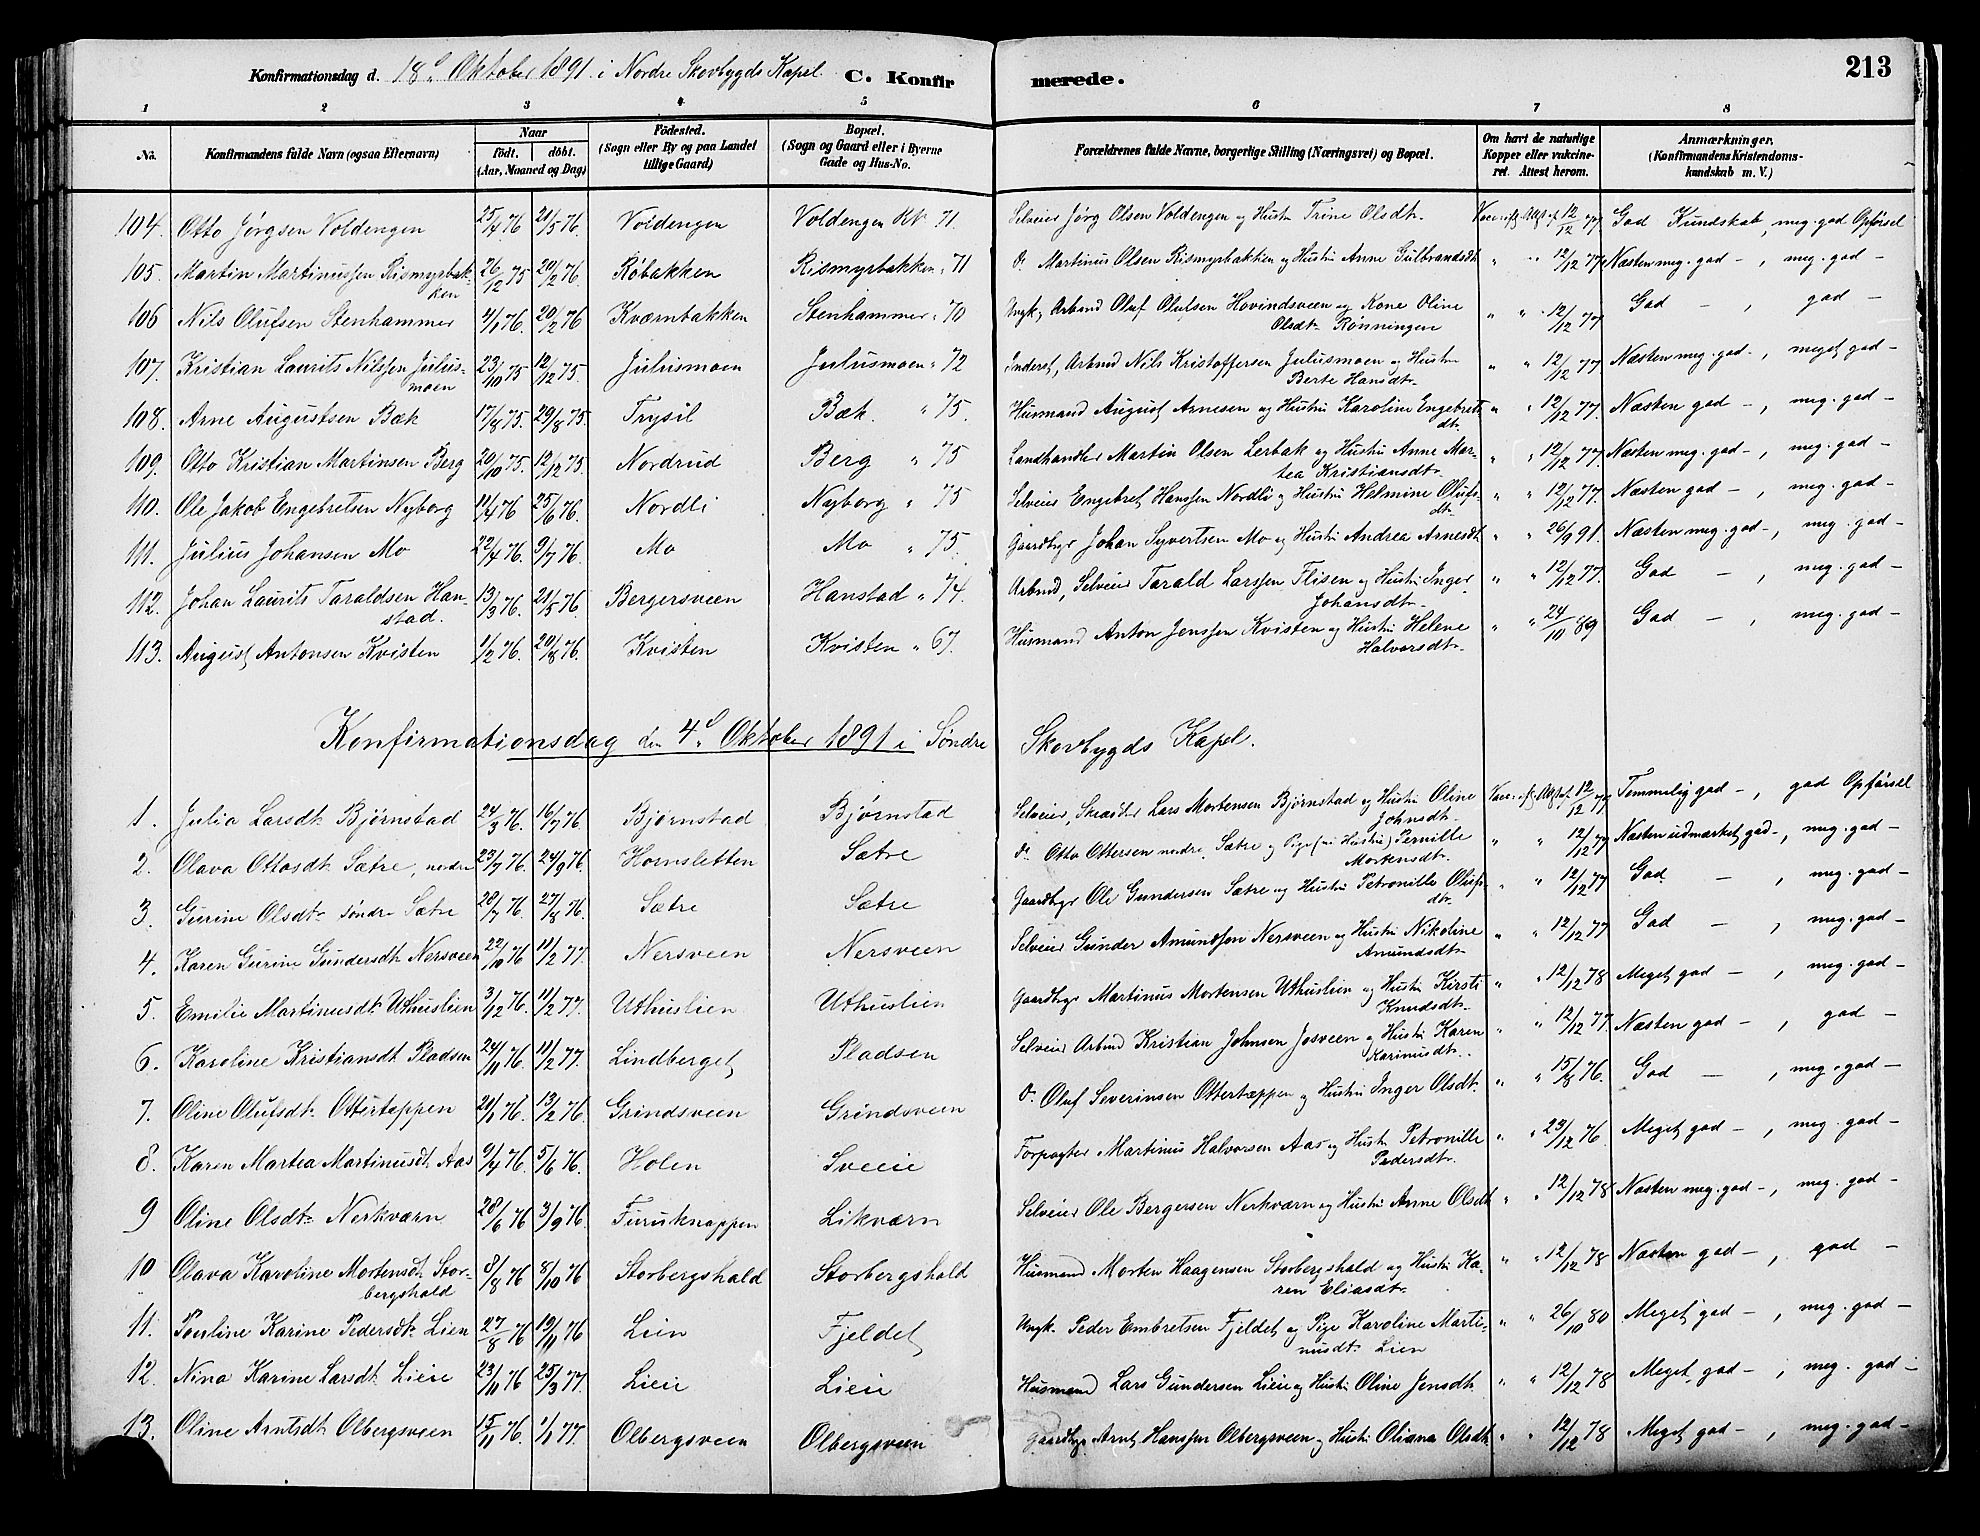 213
Konfirmationsdag d. 18d Oktober 1891 i Nordre Skovbygds Kapel. C. Konfirmerede.
1 2 3 4 5 6 7 8
No. Konfirmandens fulde Navn (ogsaa Efternavn) Naar født. døbt. (Aar, Maaned og Dag) Fødested. (Sogn eller By og paa Landet tillige Gaard) Bopæl. (Sogn og Gaard eller i Byerne Gade og Hus-No. Forældrenes fulde Navne, borgerlige Stilling (Næringsvei) og Bopæl. Om havt de naturlige Kopper eller vakcineret. Attest herom. Anmærkninger. (Konfirmandens Kristendomskundskab m. V.)
104. Otto Jørgsen Voldengen 25/4 76 21/5 76. Voldengen Voldengen Kr. 71. Selveier Jørg Olsen Voldengen og Hustr. Trine Olsdtr. 12/12 77 God Kundskab, meg. god Opførsel
105. Martin Martinussen Rismyrbakken 26/12 75 20/2 76. Røbakken Rismyrbakken " 71 Do Martinus Olsen Rismyrbakken og Hustru Anne Gulbrandsdt. " " 12/12 77 Næsten meg. god —, meg. god —
106 Nils Olufsen Stenhammer 4/1 76. 20/2 76 Kværnbakken Stenhammer " 70 Ungk, Arbmd Oluf Olufsen Hovindsveen og Kone Oline Olsdtr. Rønningen " " 12/12 77 God —, god —
107. Kristian Laurits Nilssen Juliusmoen 23/10 75 12/12 75. Juliusmoen Juliusmoen " 72 Inderst, Arbmd Nils Kristoffersen Juliusmoen og Hustru Berte Hansdtr. " " 12/12 77 Næsten meg. god —, meget god —
108. Arne Augustsen Bæk 17/8 75. 29/8 75. Trysil Bæk. " 75. Husmand August Arnesen og Hustru Karoline Engebretsdt. " " 12/12 77. Næsten god —, meg. god —
109. Otto Kristian Martinsen Berg 20/10 75. 12/12 75. Nordrud Berg " 75 Landhandler Martin Olsen Lerbak og Hustru Anne Martea Kristiansdtr. " " 12/12 77. Næsten meg. god —, meg. god —
110. Ole Jakob Engebretsen Nyborg 11/4 76 25/6 76. Nordli Nyborg " 75 Selveier Engebret Hanssen Nordli og Hustru Helmine Olufsdt. " " 12/12 77. Næsten god —, meg. god —
111. Julius Johansen Mo 22/4 76. 9/7 76. Mo Mo " 75. Gaardbgr Johan Syvertsen Mo og Hustru Andrea Arnesdt. " " 26/9 91. Næsten meg. god —, meg. god —
112. Johan Laurits Taraldsen Hanstad. 13/3 76. 21/5 76. Bergersveen Hanstad " 74. Arbmd, Selveier Tarald Larssen Flisen og Hustru Inger Johansdtr. " " 12/12 77. God —, meg. god —
113. August Antonsen Kvisten 1/2 76. 20/8 76. Kvisten Kvisten " 67. Husmand Anton Jenssen Kvisten og Hustru Helene Halvorsdtr. " " 24/10 89 God —, meg. god —
Konfirmationsdag den 4d Oktober 1891 i Søndre Skovbygds Kapel.
1. Julia Larsdt. Bjørnstad 24/3 76. 16/7 76. Bjørnstad Bjørnstad Selveier, Skrædder Lars Mortensen Bjørnstad og Hustru Oline Johnsdt. 12/12 77 Temmelig god —, god Opførsel
2. Olava Ottosdt. Sætre, nordre 23/7 76. 24/9 76. Hornsletten Sætre Do Otto Ottersen nordre Sætre og Pige (nu Hustru) Pernille Mortensdt. " " 12/12 77 Næsten udmærket god —, meg. god —
3. Gurine Olsdt. søndre Sætre 28/7 76. 27/8 76. Sætre Sætre Gaardbgr Ole Gundersen Sætre og Hustru Petronille Olufsdtr. " " 12/12 77 God —, meg. god —
4. Karen Gurine Gundersdt. Nersveen 22/10 76 11/2 77. Nersveen Nersveen Selveier Gunder Amundsen Nersveen og Hustru Nikoline Amundsdt. " " 12/12 77 God —, meg. god —
5. Emilie Martinusdt. Uthuslien 3/12 76. 11/2 77. Uthuslien Uthuslien Gaardbgr Martinus Mortensen Uthuslien og Hustru Kirsti Knudsdt. " " 12/12 78 Meget god —, meg. god —
6. Karoline Kristiansdt. Pladsen 24/11 76. 11/2 77. Lindberget Pladsen Selveier Arbmd Kristian Johnsen Josveen og Hustru Karen Karinusdt. " " 12/12 77. Næsten god —, god —
7. Oline Olufsdt. Ottertæppen 20/1 76. 13/2 76. Grindsveen Grindsveen Do Oluf Severinsen Ottertæppen og Hustru Inger Olsdt. " " 15/8 76. God —, meg. god —
8. Karen Martea Martinusdt. Aas 9/4 76. 5/6 76. Holen Sveie Forpagter Martinus Halvorsen Aas og Hustr. Petronille Pedersdt. " " 23/12 76. Meget god —, meg. god —
9 Oline Olsdt. Nerkværn 28/6 76 3/9 76. Furuknappen Likværn Selveier Ole Bergersen Nerkværn og Hustru Anne Olsdt. " " 12/12 78 Næsten meg. god —, meg. god —
10 Olava Karoline Mortensdt. Storbergshald 8/8 76 8/10 76 Storbergshald Storbergshald Husmand Morten Haagensen Storbergshald og Hustru Karen Eliasdt. " " 12/12 78 Næsten god —, god —
11. Pouline Karine Pedersdt. Lien 27/8 76 19/11 76 Lien Fjeldet Ungk. Peder Embretsen Fjeldet og Pige Karoline Martinusdt. Lien " " 26/10 80 Meget god —, meg. god —
12. Nina Karine Larsdt. Lieie 23/11 76 25/3 77. Lieie Lieie Husmand Lars Gundersen Lieie og Hustru Oline Jensdt. " " 12/12 78 Meget god —, meg. god —
13. Oline Arntsdt. Olbergsveen 15/11 76. 1/1 77. Olbergsveen Olbergsveen Gaardbgr Arnt Hanssen Olbergsveen og Hustru Oliana Olsdt. " " 12/12 78 Meget god —, meg. god —